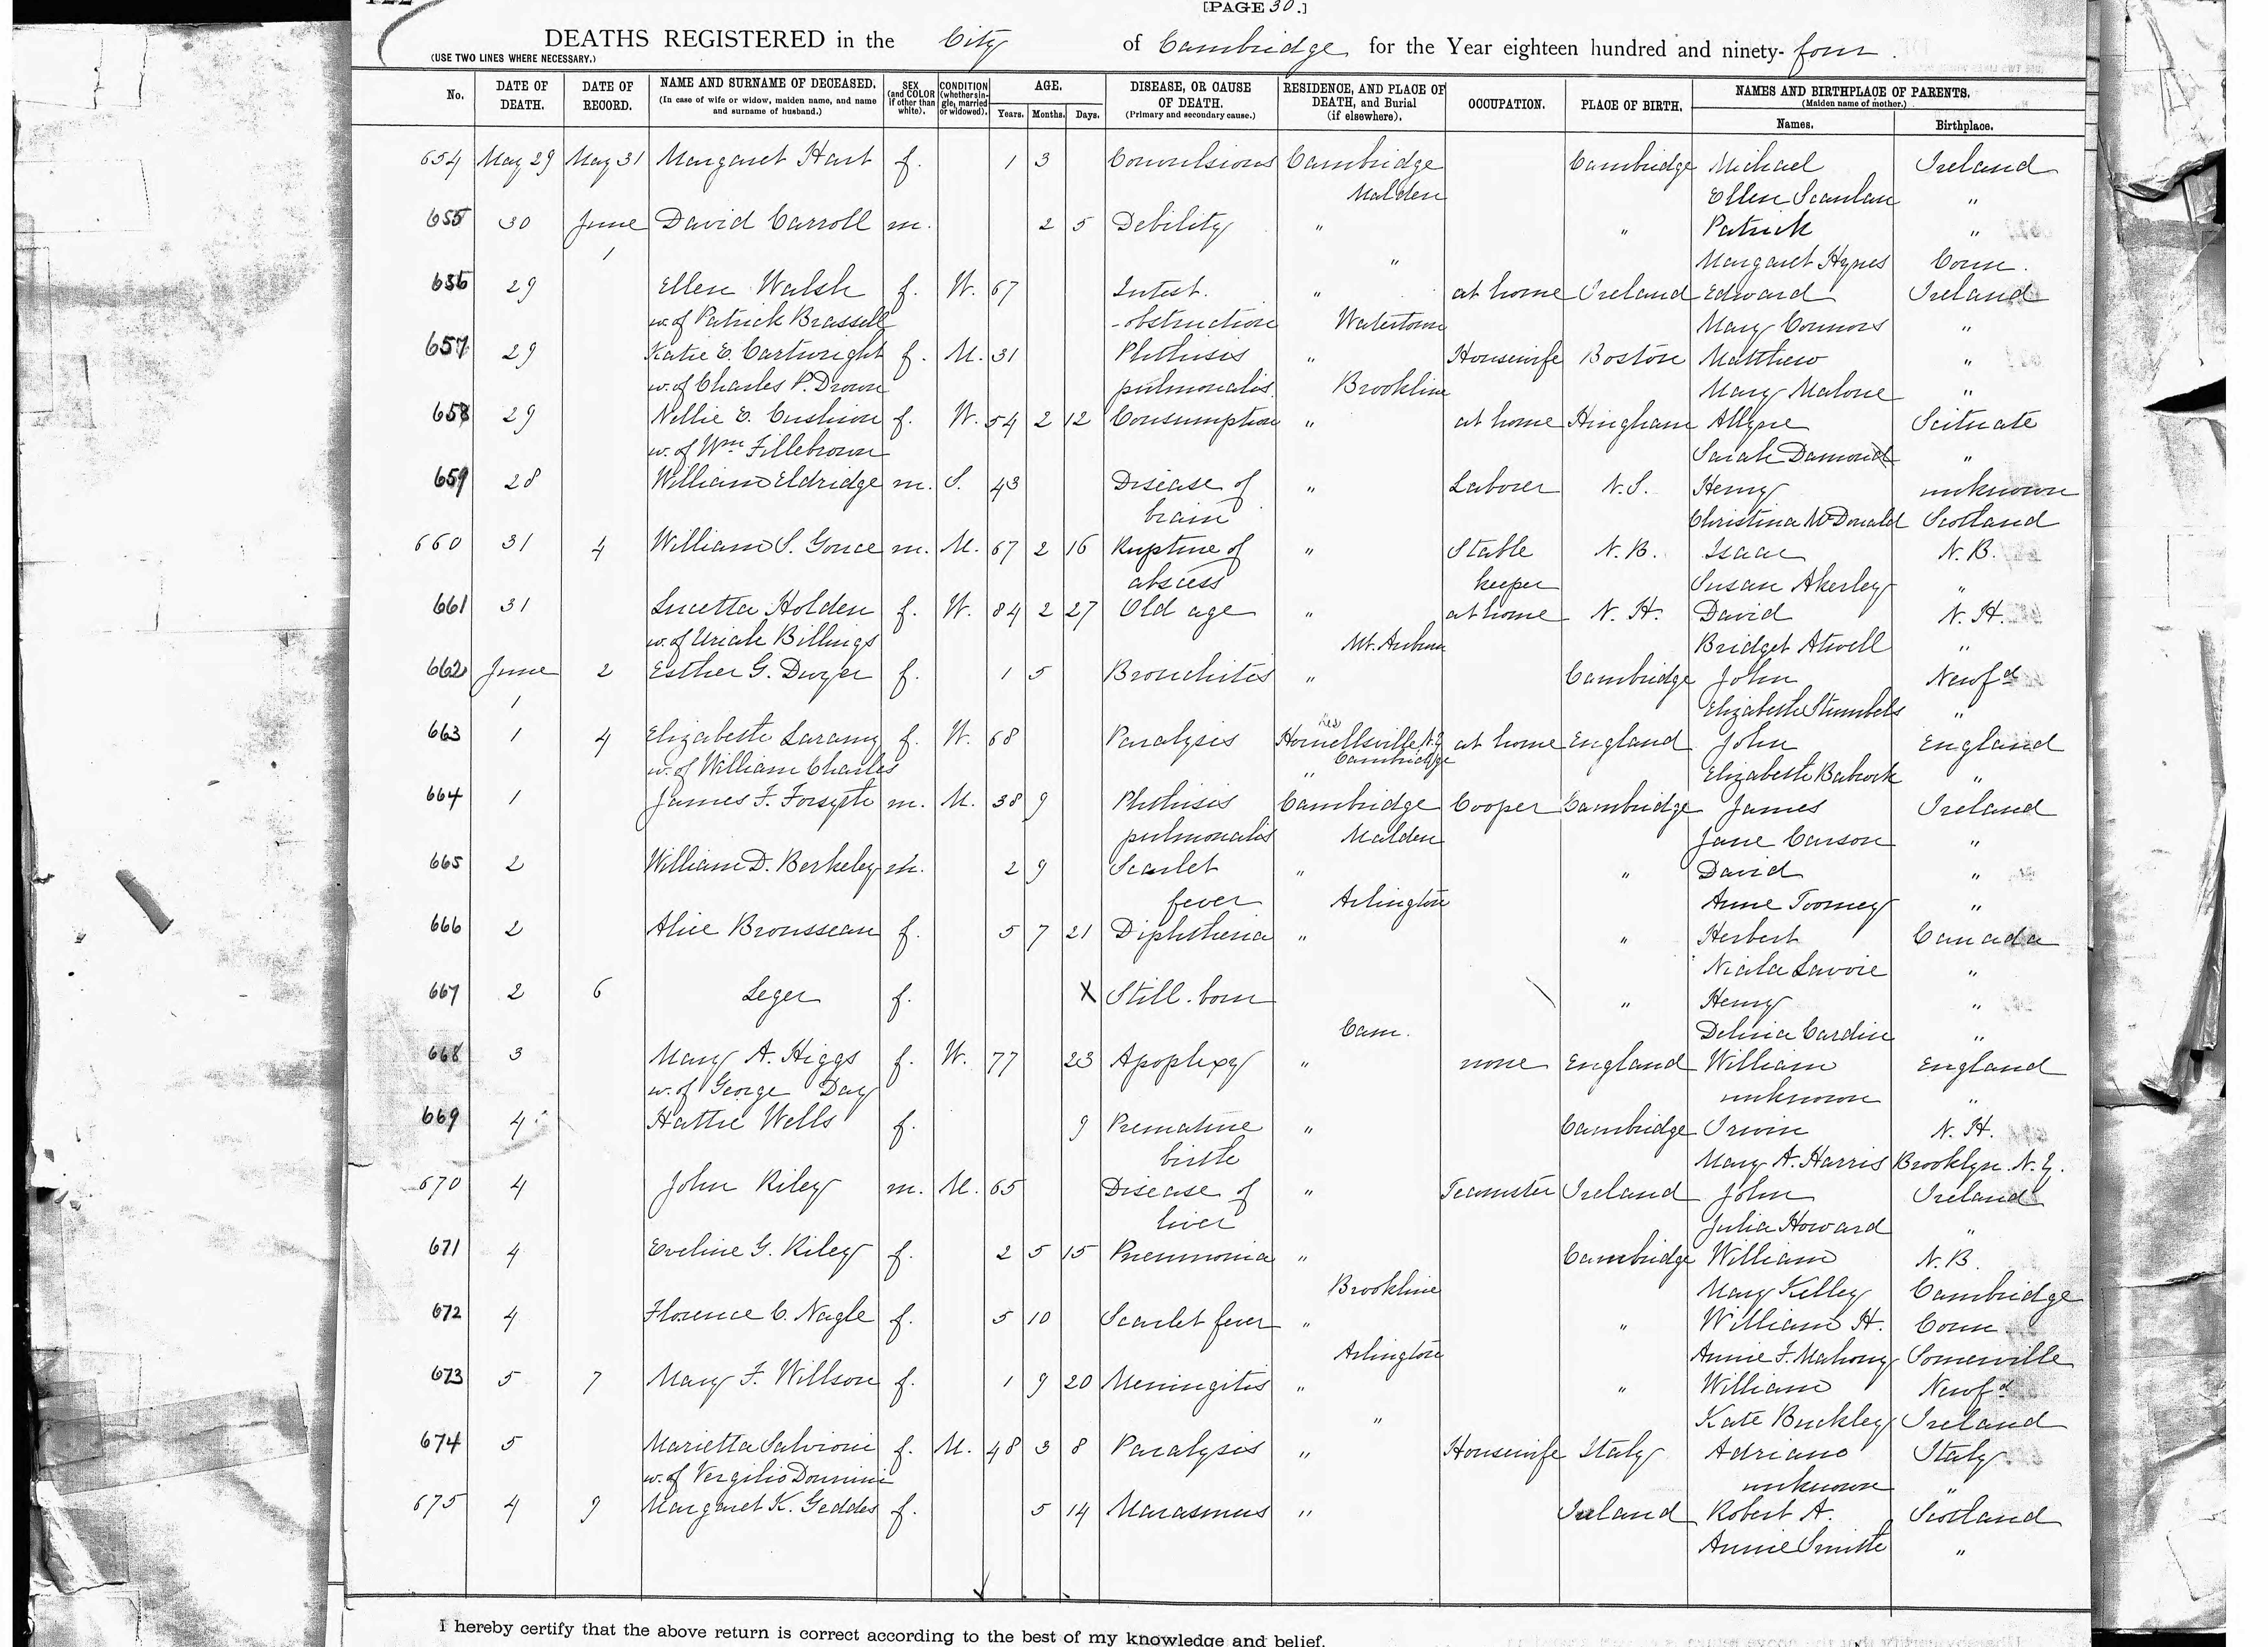 [PAGE 30.]
DEATHS REGISTERED in the City of Cambridge for the Year eighteen hundred and ninety-four.
(USE TWO LINES WHERE NECESSARY.)
No. DATE OF DEATH. DATE OF RECORD. NAME AND SURNAME OF DECEASED. (In case of wife or widow, maiden name, and name and surname of husband.) SEX (and COLOR if other than white). CONDITION (whether single, married or widowed). AGE. Years. Months. Days. DISEASE, OR CAUSE OF DEATH. (Primary and secondary cause.) RESIDENCE, AND PLACE OF DEATH, and Burial (if elsewhere). OCCUPATION. PLACE OF BIRTH. NAMES AND BIRTHPLACE OF PARENTS. (Maiden name of mother.) Names. Birthplace.
654 May 29 May 31 Margaret Hart f. 1 3 Convulsions Cambridge Cambridge Michael Ireland
Malden Ellen Scanlan "
655 30 June David Carroll m. 2 5 Debility " " Patrick "
1 " Margaret Hynes Conn.
656 29 Ellen Walsh f. W. 67 Intest. " at home Ireland Edward Ireland
w. of Patrick Brassell -obstruction Watertown Mary Connors "
657 29 Katie E. Cartwright f. M. 31 Phthisis " Housewife Boston Matthew "
w. of Charles P. Drown pulmonalis Brookline Mary Malone "
658 29 Nellie E. Cushion f. W. 54 2 12 Consumption " at home Hingham Allyne Scituate
w. of Wm Fillebrown Sarah Damond "
659 28 William Eldridge m. S. 43 Disease of " Laborer N.S. Henry unknown
brain Christina McDonald Scotland
660 31 4 William S. Gouce m. M. 67 2 16 Rupture of " Stable N.B. Isaac N.B.
abscess keeper Susan Akerley "
661 31 Lucetta Holden f. W. 84 2 27 Old age " at home N.H. David N.H.
w. of Uriah Billings Mt. Auburn Bridget Atwell "
662 June 2 Esther G. Dwyer f. 1 5 Bronchitis " Cambridge John Newfd
1 Elizabeth Stumbels "
Res
663 1 4 Elizabeth Laramy f. W. 68 Paralysis Hornellsville, N.Y. at home England John England
w. of William Charles " Cambridge Elizabeth Babcock "
664 1 James F. Forsyth m. M. 38 9 Phthisis Cambridge Cooper Cambridge James Ireland
pulmonalis Malden Jane Carson "
665 2 William D. Berkeley m. 2 9 Scarlet " " David "
fever Arlington Anne Toomey "
666 2 Alice Brousseau f. 5 7 21 Diphtheria " " Herbert Canada
Niala Lavoie "
667 2 6 Leger f. X Still-born " Henry "
Cam. Delnia Cardin "
668 3 Mary A. Higgs f. W. 77 23 Apoplexy " none England William England
w. of George Day unknown "
669 4 Hattie Wells f. 9 Premature " Cambridge Irwin N.H.
birth Mary A. Harris Brooklyn N.Y.
670 4 John Riley m. M. 65 Disease of " Teamster Ireland John Ireland
liver Julia Howard "
671 4 Eveline G. Riley f. 2 5 15 Pneumonia " Cambridge William N.B.
Brookline Mary Kelley Cambridge
672 4 Florence C. Nagle f. 5 10 Scarlet fever " " William H. Conn.
Arlington Annie F. Mahony Somerville
673 5 7 Mary F. Willson f. 1 9 20 Meningitis " " William Newfd
" Kate Buckley Ireland
674 5 Marietta Salvioni f. M. 48 3 8 Paralysis " Housewife Italy Adriano Italy
w. of Vergilio Donnini unknown "
675 4 9 Margaret K. Geddes f. 5 14 Marasmus " Ireland Robert A. Scotland
Annie Smith "
I hereby certify that the above return is correct according to the best of my knowledge and belief.